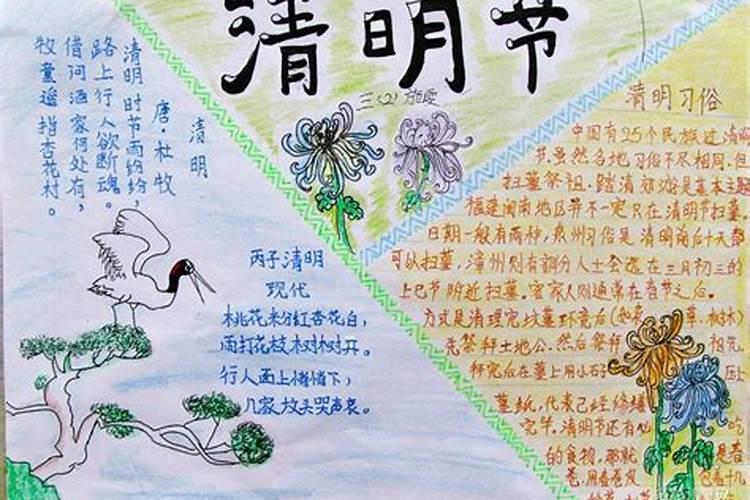 清明节
三(2)
清明
唐·杜牧
清明时节雨纷纷，
路上行人欲断魂。
借问酒家何处有，
牧童遥指杏花村。
丙子清明
现代
桃花粉红杏花白，
雨打花枝树树开。
行人面上悄悄下，
几家坟头哭声哀。
清明习俗
中国有25个民族过清明
节,虽然各地习俗不尽相同,但
扫墓祭祖、踏清郊游是基本主题
福建闽南地区并不一定只在清明节扫墓,
日期一般有两种,泉州习俗是清明前后十天都
可以扫墓,漳州则有部分人士会选在三月初三的
上巳节附近扫墓。客家人则通常在春节之后。
方式是清理完坟墓环境后(如杂草、树木)
先祭拜土地公.然后祭拜祖先.
祭完后在墓上用小石 压上
墓纸,代表已经修缮
完毕.清明节还有 吃
的食物,那就 是春
卷.用春卷皮 包着